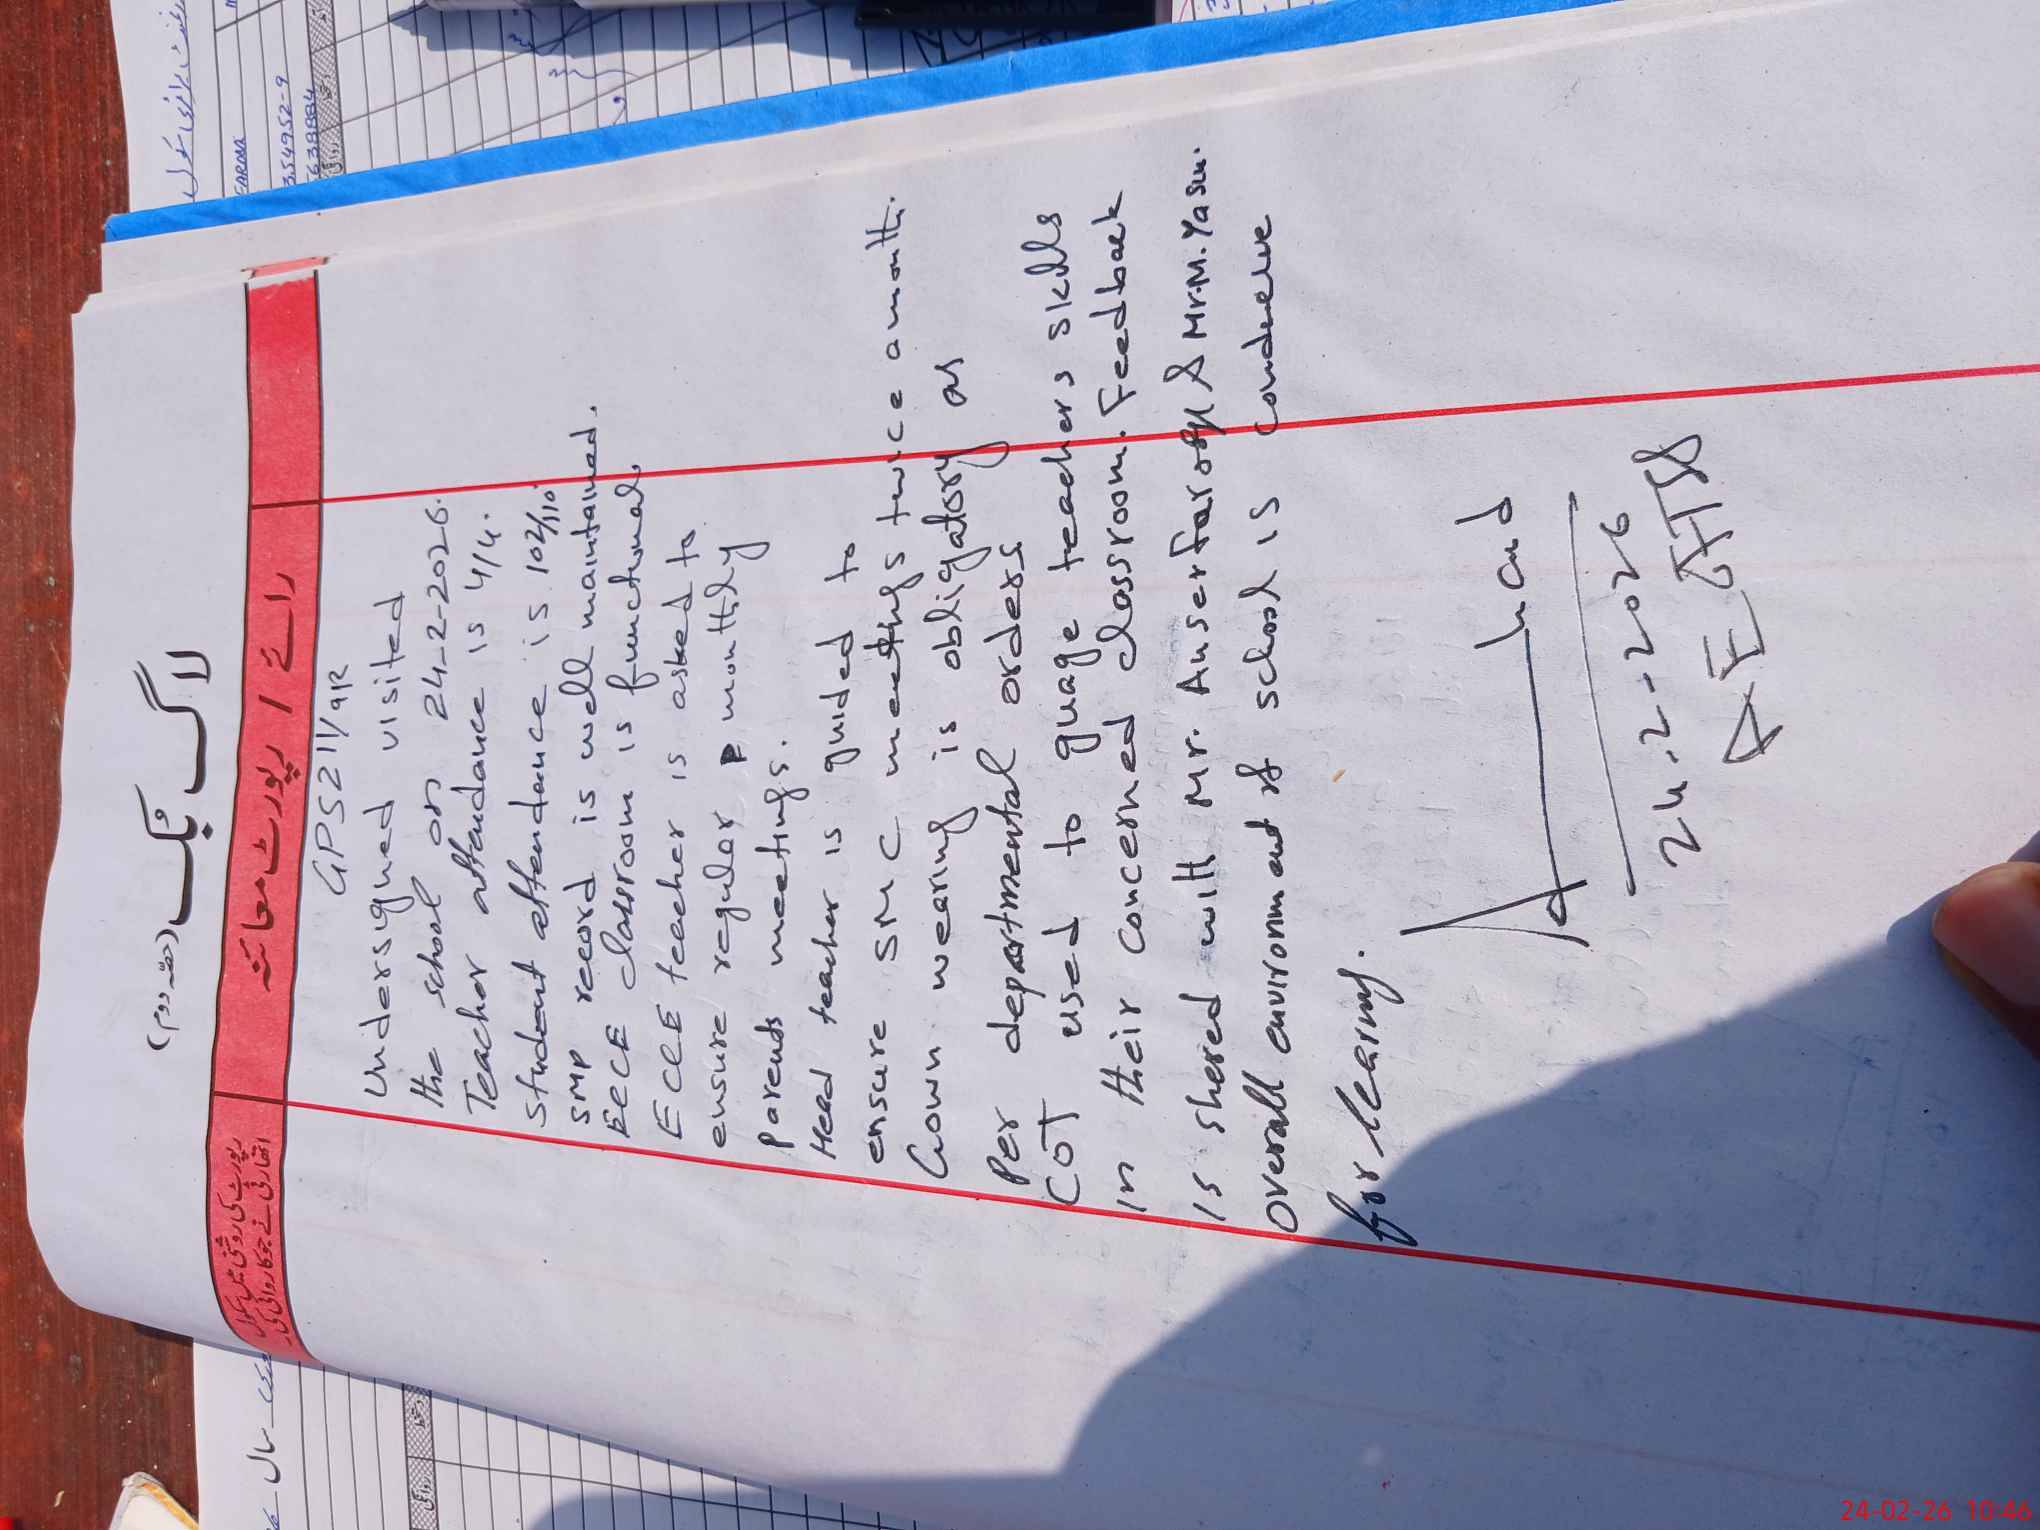 لاگ بک (حصہ دوم)
رائے / رپورٹ معائنہ
رپورٹ کی روشنی میں سکول
GPS 211/9R
Undersigned visited
the school on 24-2-2026.
Teacher attendance is 4/4.
Student attendance is 102/110
SMP record is well maintained.
ECCE classroom is functional.
ECCE teacher is asked to
ensure regular P monthly
parents meetings.
Head teacher is guided to
ensure SMC meetings twice a month.
Gown wearing is obligatory as
Per departmental orders
COT used to guage teachers skills
In their concerned classroom. Feedback
is shared with Mr. Anser Farooq & Mr. M. Yasin.
Overall environment of school is conducive
for learning.
Ahad
24-2-2026
AEO
24-02-26 10:46